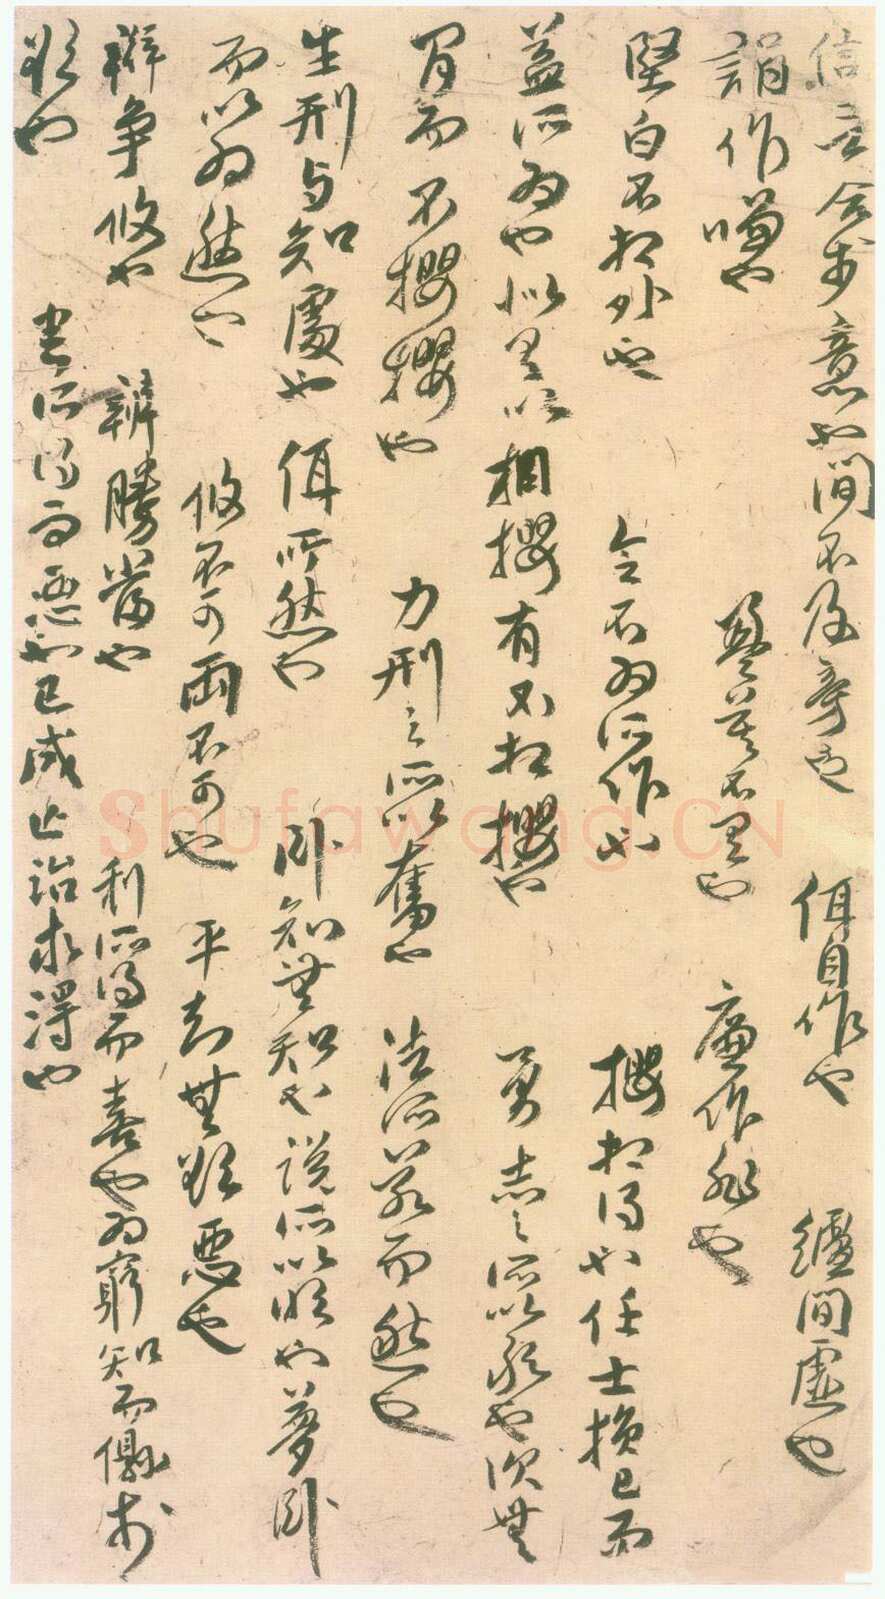 信言合於意也間不及旁也 佴自作也 纑間虛也
䛼作嗛也 盈莫不有也 廉作非也
堅白不相外也 令不為所作也 攖相得也任士損己而
益所為也似有以相攖有不相攖也 勇志之所以敢也次無
間而不攖攖也 力刑之所以奮也 法所若而然也
生刑与知處也佴所然也 卧知無知也說所以明也夢卧
而以為然也 攸不可兩不可也 平知無欲惡也
辯爭攸也 辯勝當也 利所得而喜也為窮知而𠐴於
欲也 害所得而惡也已成亡治求得也
Shufawang.CN